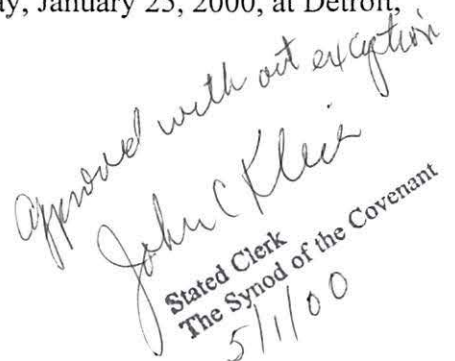 ay, January 25, 2000, at Detroit,
approved with out exception
John C Klein
Stated Clerk
The Synod of the Covenant
5/1/00